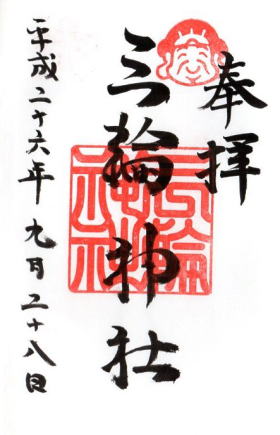 奉拝
三輪神社
三輪神社
平成二十六年九月二十八日